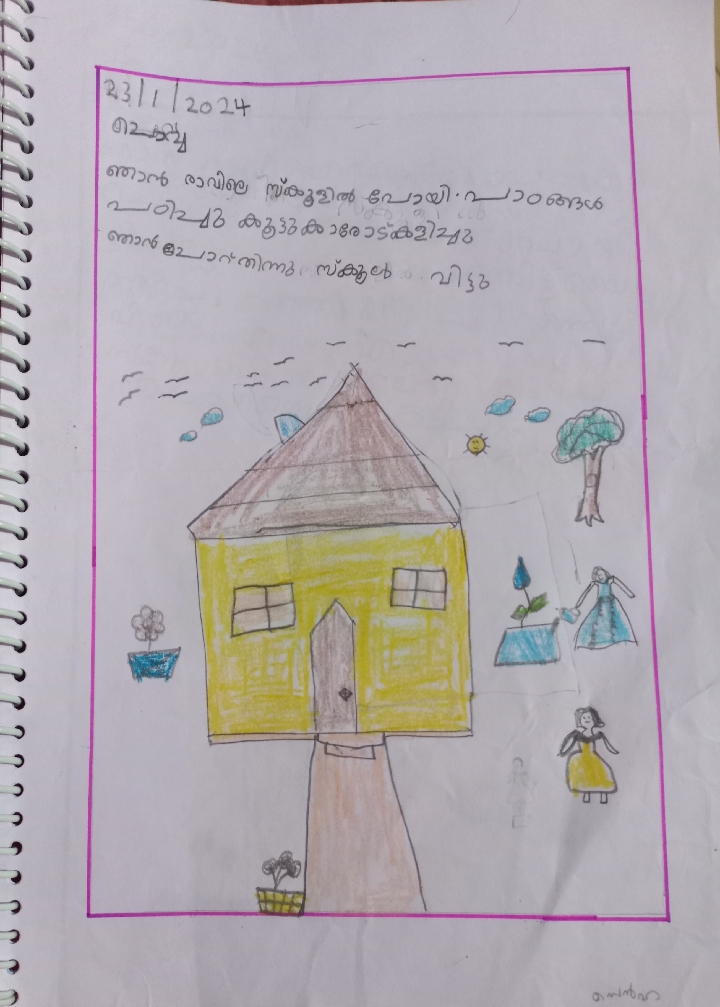 23/1/2024
ചൊവ്വ
ഞാൻ രാവിലെ സ്കൂളിൽ പോയി. പാഠങ്ങൾ
പഠിച്ചു കൂട്ടുകാരോട് കളിച്ചു
ഞാൻ ചോറ് തിന്നു. സ്കൂൾ വിട്ടു